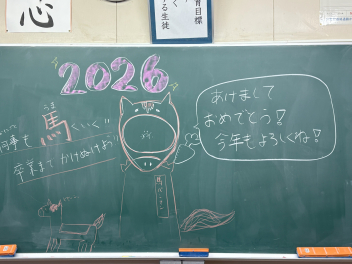 心
育目標
く
る生徒
2026
あけまして
おめでとう!
今年もよろしくね!
うま
何事も馬くいく"
卒業までかけぬけよう